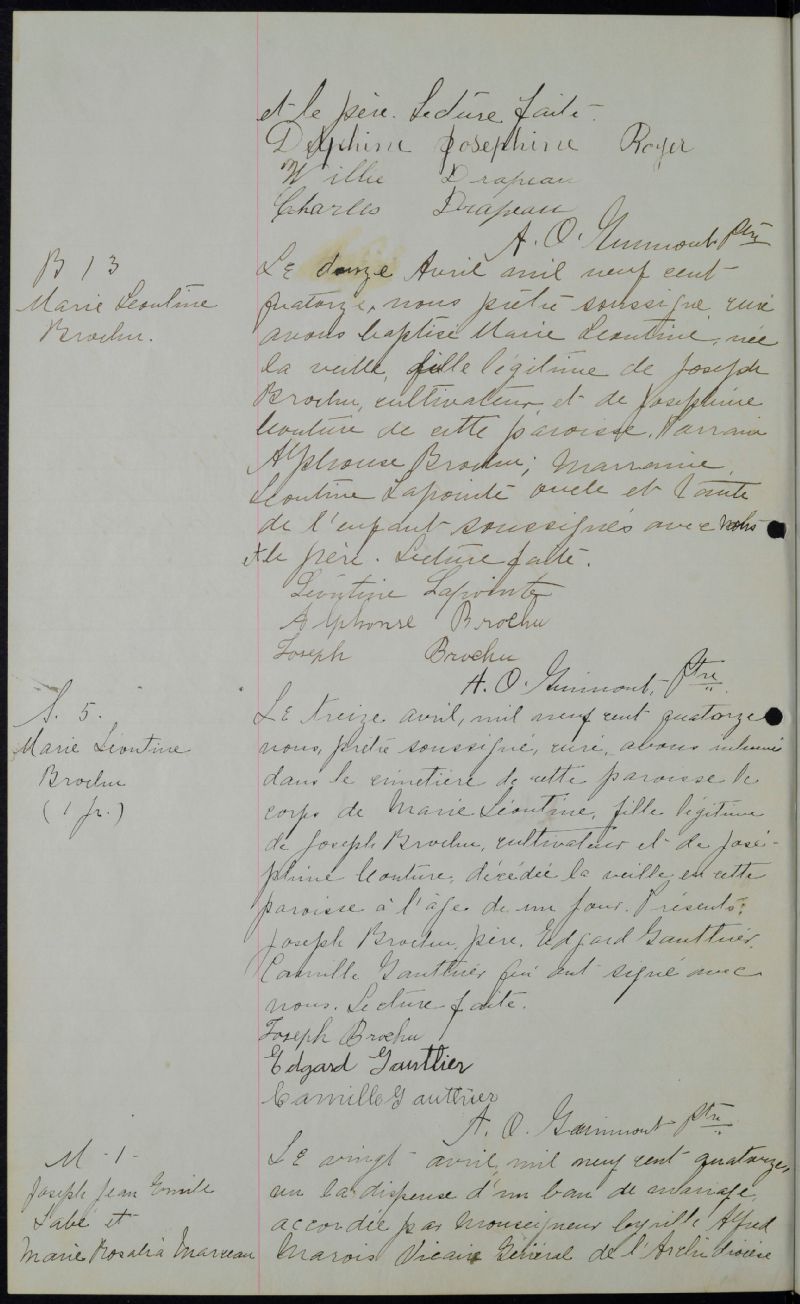 et le père. Lecture faite.
Delphine Josephine Royer
Willie Drapeau
Charles Drapeau
A. O. Guimont ptre
B 13
Marie Léontine
Brochu.
Le douze Avril mil neuf cent
quatorze, nous prêtre soussigné, curé
avons baptisé Marie Léontine, née
la veille, fille légitime de Joseph
Brochu, cultivateur et de Joséphine
Couture de cette paroisse. Parrain
Alphonse Brochu; Marraine,
Léontine Lapointe oncle et tante
de l'enfant soussignés avec nous
et le père. Lecture faite.
Léontine Lapointe
Alphonse Brochu
Joseph Brochu
A. O. Guimont, Ptre
S. 5.
Marie Léontine
Brochu
(1 jr.)
Le treize avril, mil neuf cent quatorze
nous, prêtre soussigné, curé, avons inhumé
dans le cimetière de cette paroisse le
corps de Marie Léontine, fille légitime
de Joseph Brochu, cultivateur et de José-
phine Couture, décédée la veille en cette
paroisse à l'âge de un jour. Présents:
Joseph Brochu, père, Edgard Gauthier,
Camille Gauthier qui ont signé avec
nous. Lecture faite.
Joseph Brochu
Edgard Gauthier
Camille Gauthier
A. O. Guimont Ptre
M - 1 -
Joseph Jean Emile
Labé et
Marie Rosalia Marceau
Le vingt avril, mil neuf cent quatorze,
vu la dispense d'un ban de mariage,
accordée par Monseigneur Cyrille Alfred
Marois Vicaire Général de l'Archidiocèse